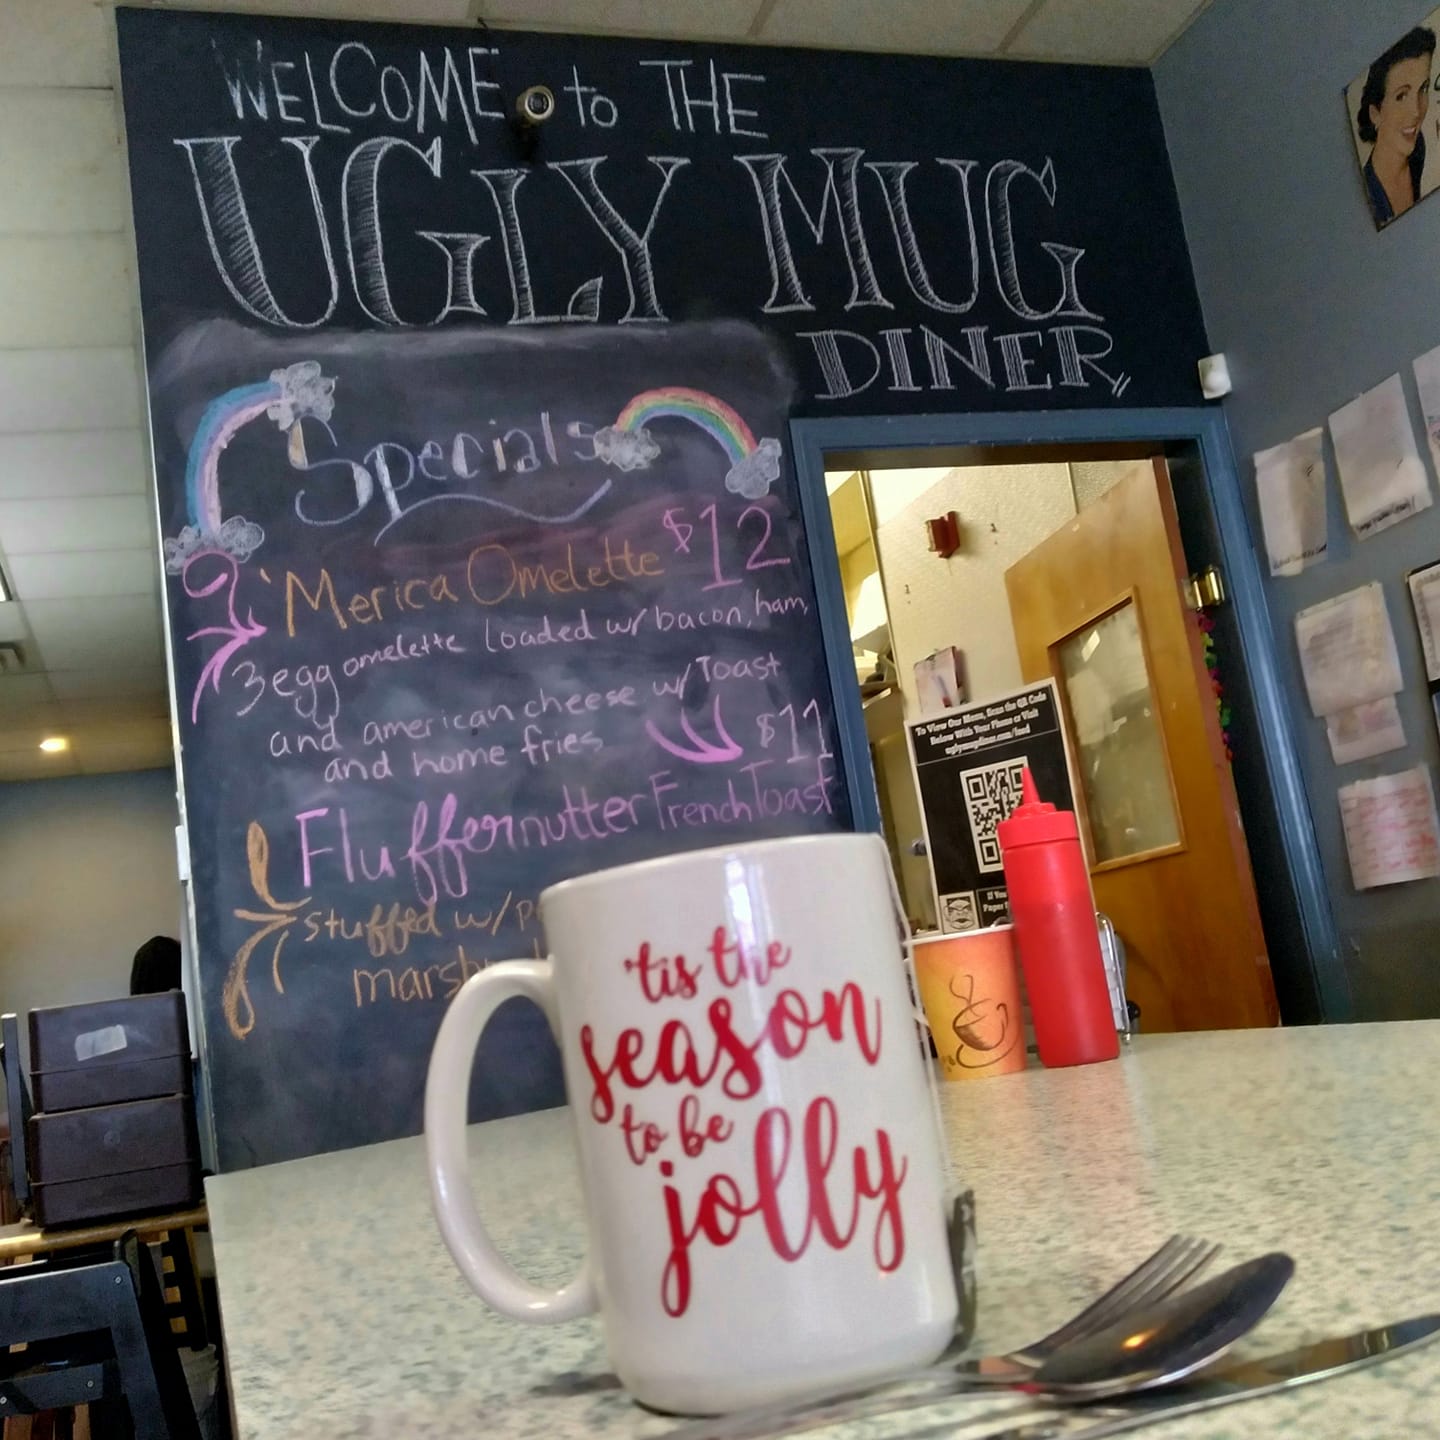 WELCOME to THE
UGLY MUG
DINER
Specials
'Merica Omelette $12
3 egg omelette loaded w/ bacon, ham,
and american cheese w/ Toast
and home fries
$11
Fluffernutter French Toast
stuffed w/
'tis the
season
to be
jolly
To View Our Menu, Scan the QR Code
Below With Your Phone or Visit
uglymugdiner.com/food
If You
Paper